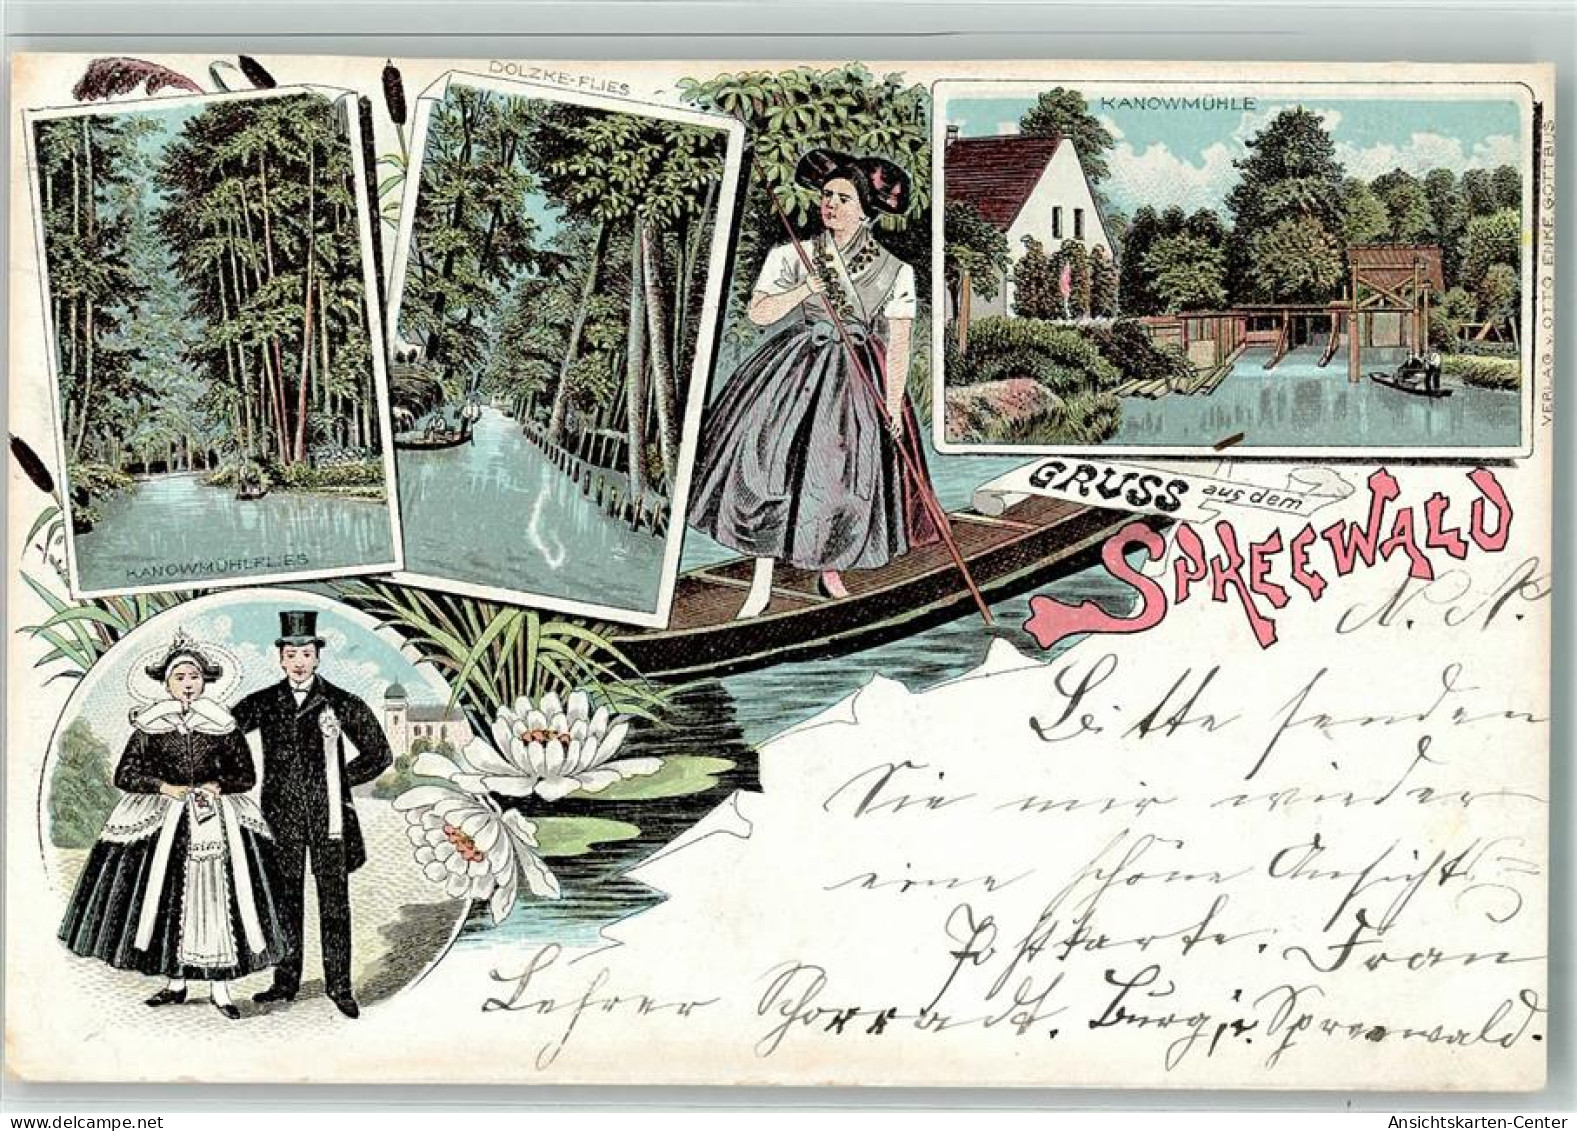 DOLZKE-FLIES
KANOWMÜHLE
VERLAG v. OTTO ENKE COTTBUS
KANOWMÜHLFLIES
GRUSS aus dem
SPREEWALD
N. N.
Bitte senden
Sie mir wieder
eine schöne Ansichts
Postkarte. Frau
Lehrer Schorradt. Burg i. Spreewald.
delcampe.net
Ansichtskarten-Center